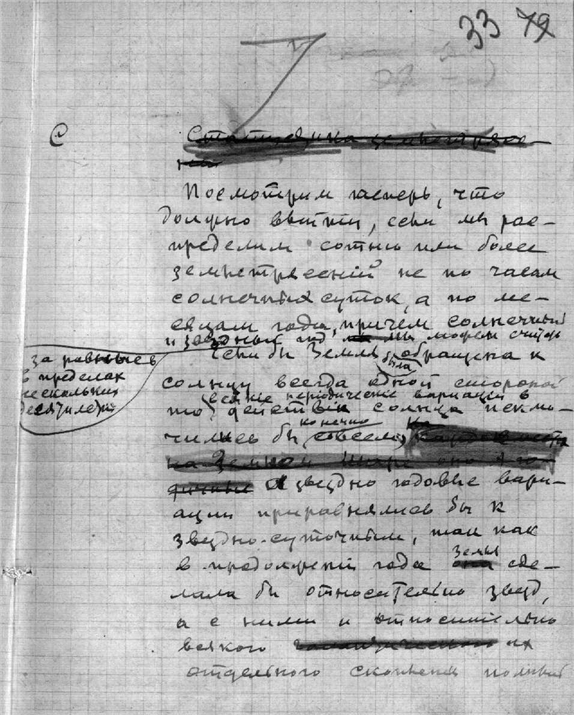 33 79
С
Посмотрим теперь, что
должно выйти, если мы рас-
пределим сотню или более
землетрясений не по часам
солнечных суток, а по ме-
сяцам года, причем солнечный
и звездный год мы можем считать
за равные в
пределах
нескольких
десятилетий
Если бы Земля была обращена к
солнцу всегда одной стороной
то всякие периодические вариации в
действии солнца исклю-
чились бы конечно совсем,
а звездно годовые вари-
ации приравнялись бы к
звездно-суточным, так как
в продолжении года Земля сде-
лала бы относительно звезд,
а с ними и относительно
всякого их
отдельного скопления полный